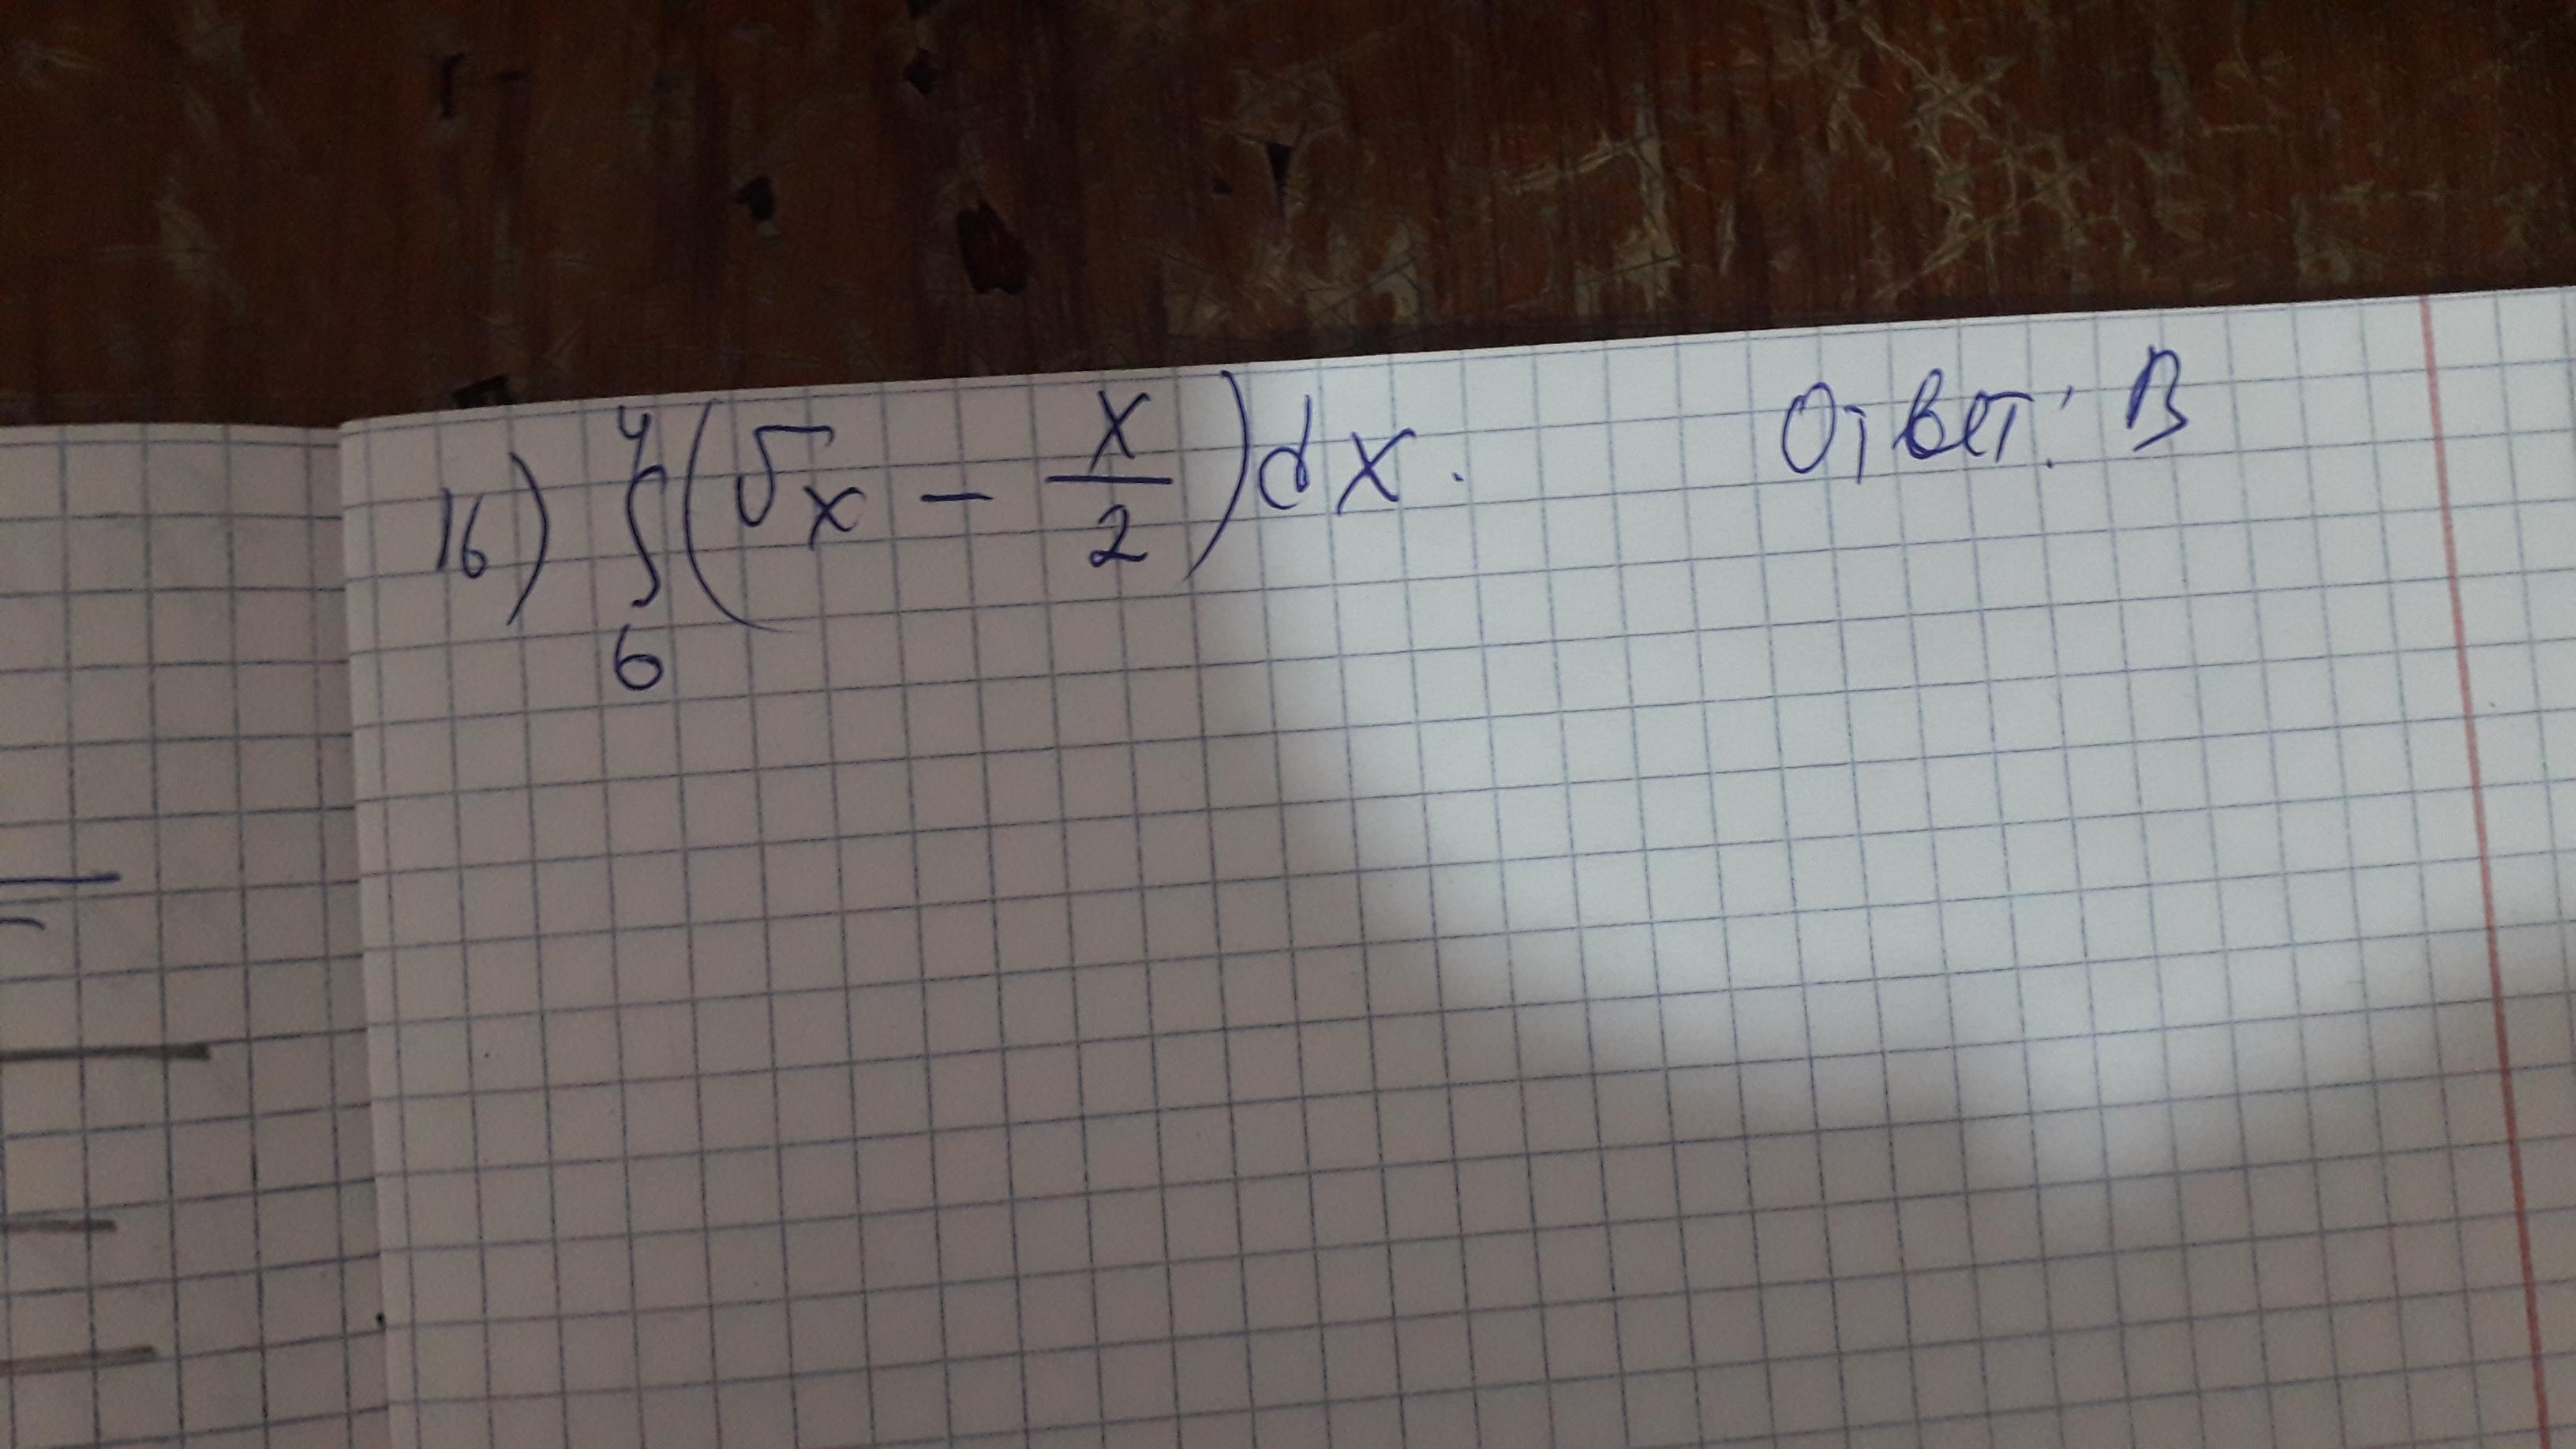 16) ∫₆⁴(√x − x/2)dx. Ответ: В